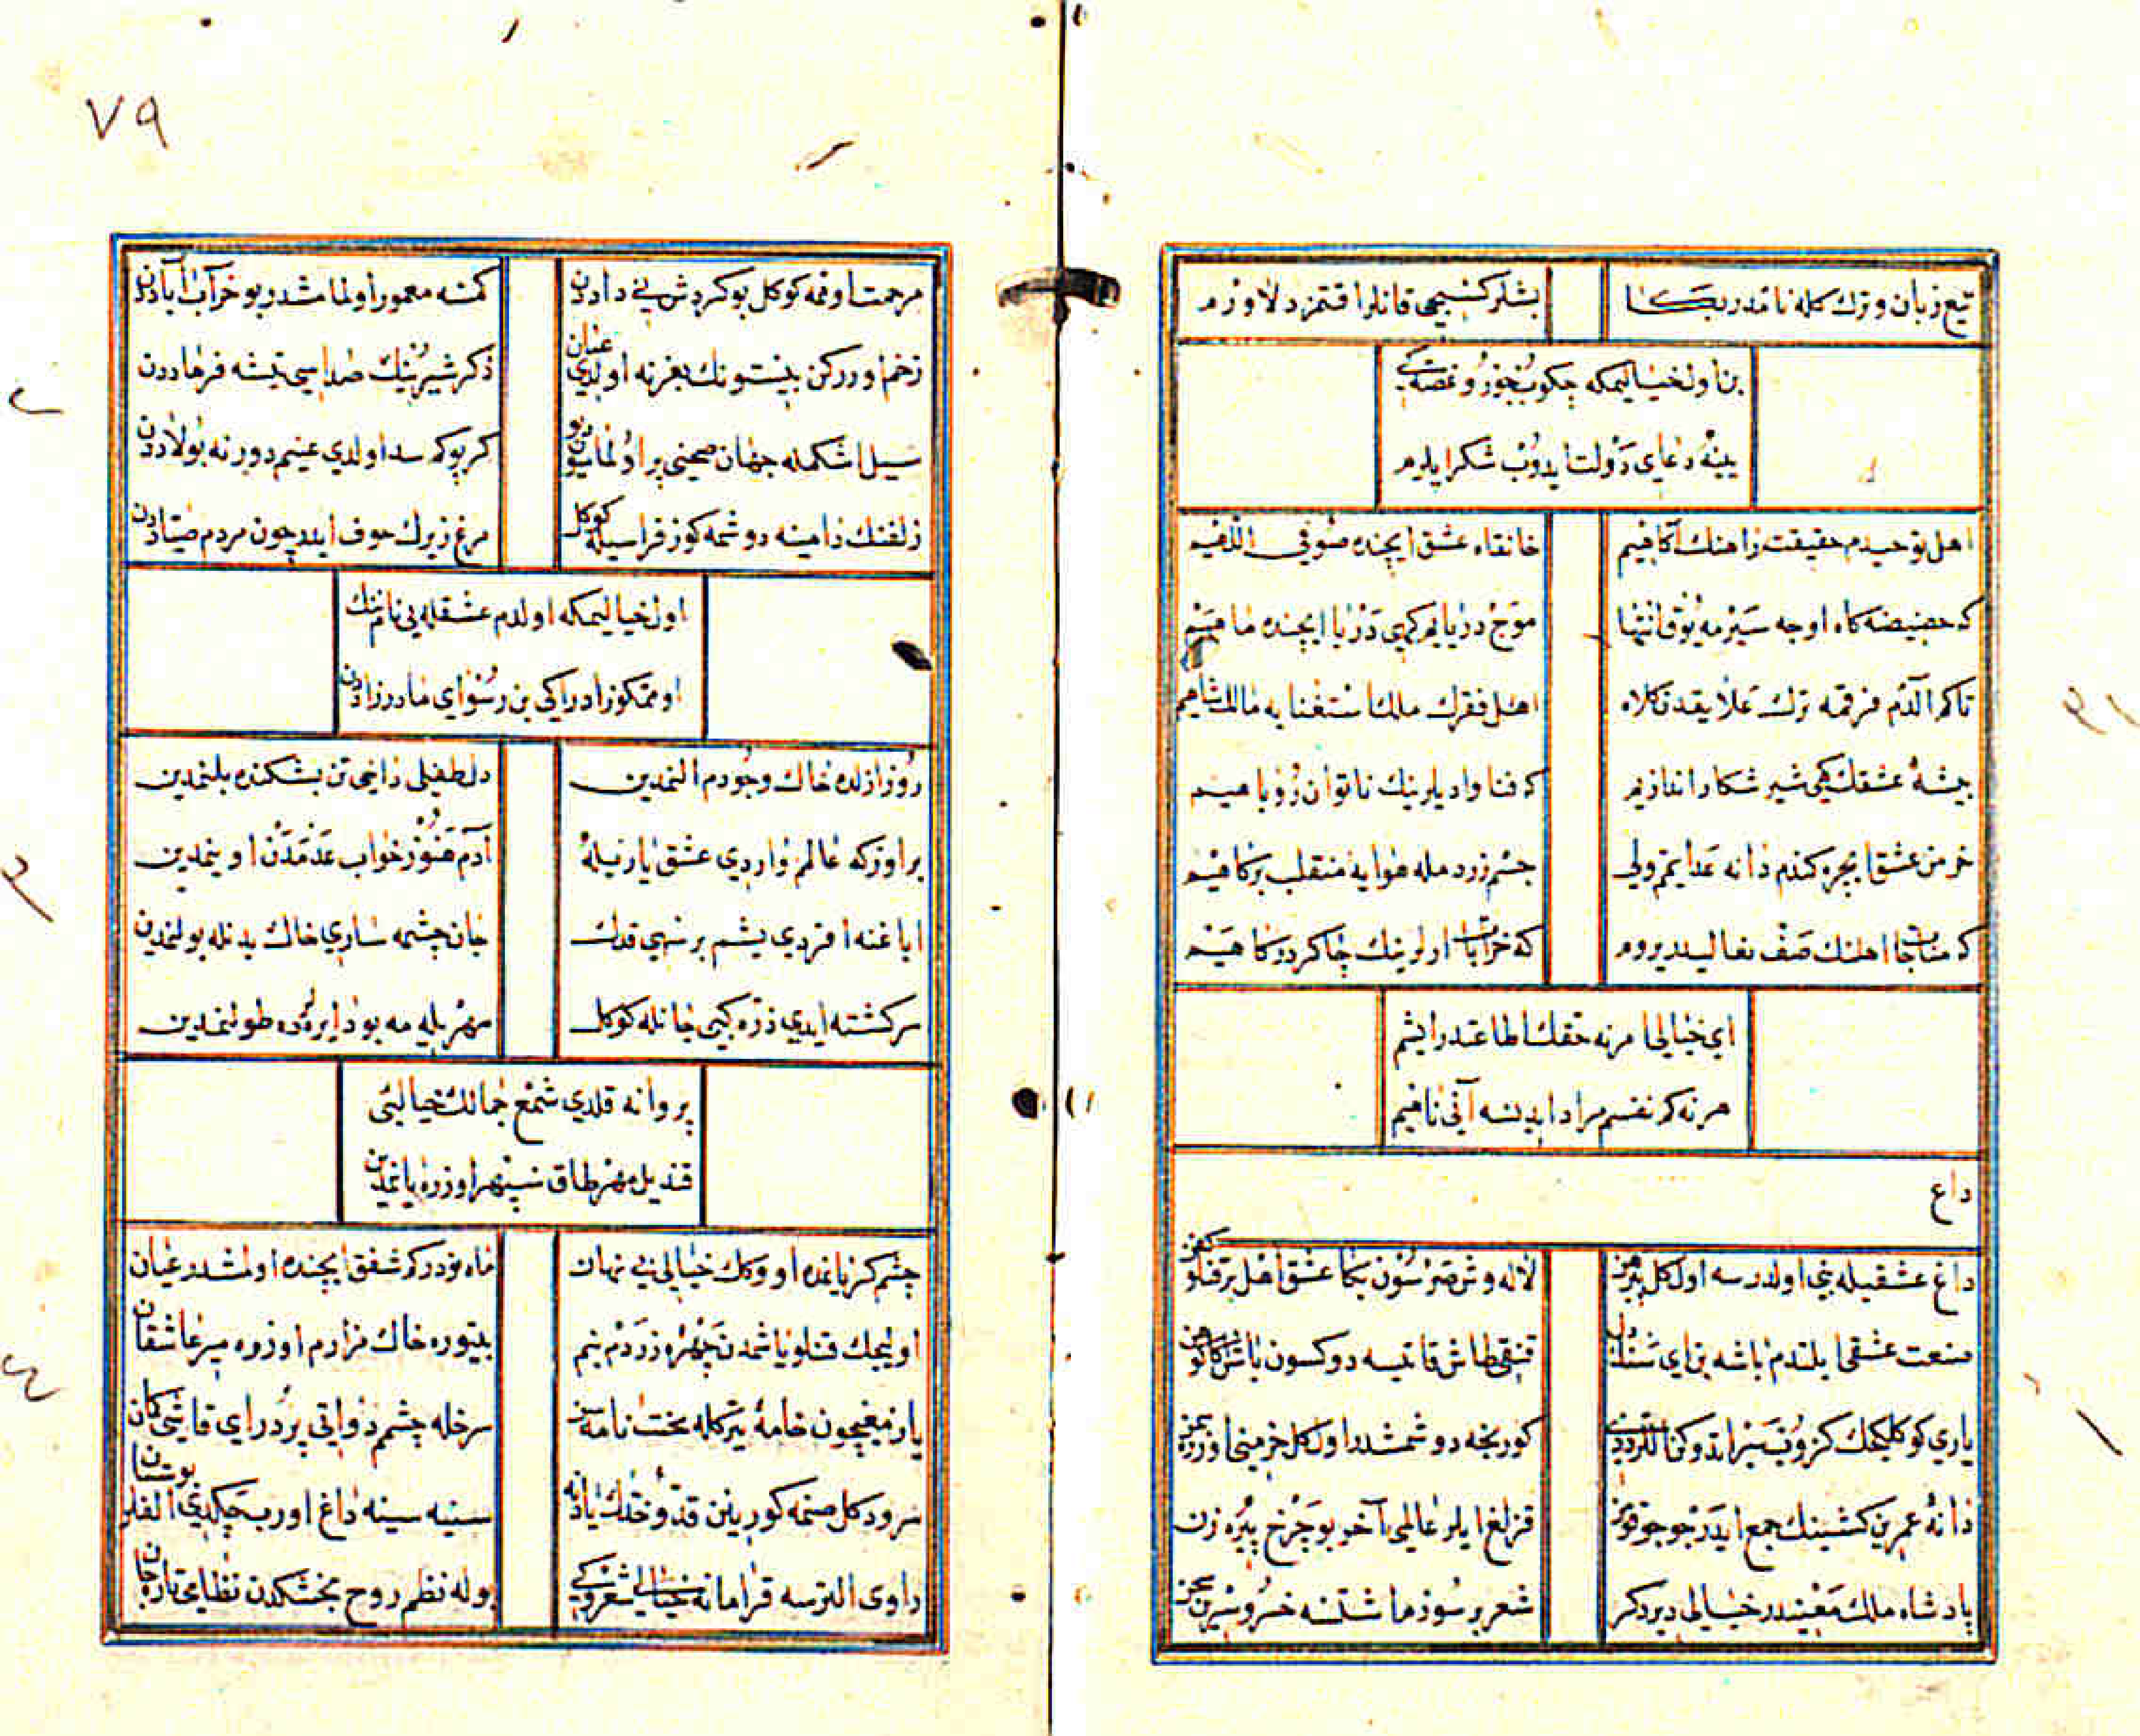 تیغ زبان و ترك كله نامدر بكا
بشلر كسیجی قانلر اقتمز دلاورم
بن اول خیالیمكه چكوب جور و غصه یی
ینه دعای دولت ایدوب شكر ایلرم
اهل توحیدم حقیقت راهنك آكاهیم
خانقاه عشق ایچنده صوفی اللهیم
كه حضیضه كاه اوجه سیرمه یوق انتها
موج دریایم كهی دریا ایچنده ماهیم
تاكم آلدم فرقمه ترك علایقدن كلاه
اهل فقرك ملك استغنایه مالك شاهیم
بیشهٔ عشقك كبی شیر شكار اندازیم
كه فنا وادیلرینك ناتوان روباهیم
خرمن عشق ایچره كندم دانه عد ایتم ولی
جسم زردمله هوایه منقلب بر كاهیم
كه مناجات اهلنك صف نعالیندیروم
كه خرابات ارلرینك چاكر دركاهیم
ای خیالی امرنه حقك اطاعتدر ایشم
هر نه كم نفسم مراد ایدنسه آنی ناهیم
داغ
داغ عشقیله بنی اولدرسه اول كل پیرهن
لاله وش صرسون بكا عشق اهل بر قنلو كفن
صنعت عشقی ایلتدم باشه بن ای سنكدل
قنقی طاش قاتیسه دوكسون باشن كوهكن
دانهٔ عمرین كشینك جمع ایدر جو جو قومز
قزلغ ایلر عالمی آخر بو چرخ پیره زن
پادشاه ملك معنیدر خیالی دیردكر
شعر پر سوزم اشتسه خسرو شیرین سخن
٧٩
مرحمت اوقمه كوكل بو كردش بی داددن
كمسه معمور اولمامشدر بو خراب آباددن
زخم اورركن بیستونك بغرنه اولدی عیان
ذكر شیرینك صداسی تیشه فرهاددن
سیل اشكمله جهان صحنی پر اولماسون دیو
كرپوكم سد اولدی عینم دورنه پولاددن
زلفنك دامینه دوشمه كوز قراسیله كوكل
مرغ زیرك خوف ایدر چون مردم صیاددن
اول خیالیمكه اولدم عشقله بی نام ننك
اوممكوز ادراكی بن رسوای مادرزاددن
روز ازلده خاك وجودم النمدین
دل طفلی داخی تن بشكنده بلنمدین
بر اوزكه عالم واردی عشق یار نیله
آدم هنوز خواب عدمدن اوینمدین
اباغنه اقردی یشم بر سهی قدك
جان چشمه ساری خاك بدنله بولنمدین
سركشته ایدی ذره كبی جانله كوكل
مهر یله مه بو دایره ده طولنمدین
پروانه قلدی شمع جمالك خیالیئی
قندیل مهر طاق سپهر اوزره یانمدین
چشم كریانمده اووكك خیالی نی نهان
ماه نودر كم شفق ایچنده اولمشدر عیان
اولیجك قنلو یاشمدن چهرهٔ زردم بنم
بیتوره خاك مزارم اوزره میر عاشقان
یازمغیچون خامهٔ تیركله بخت نامه سن
سرخله چشم دواتی پردر ای قاشی كمان
سرود كل صنمه كورینن قد و خدك یادنه
سینه سینه داغ اورب چكدی الفلر بوستان
راوی الترسه قرامانه خیالی شعرنكی
بویله نظم روح بخشكدن نظامی تازه جان